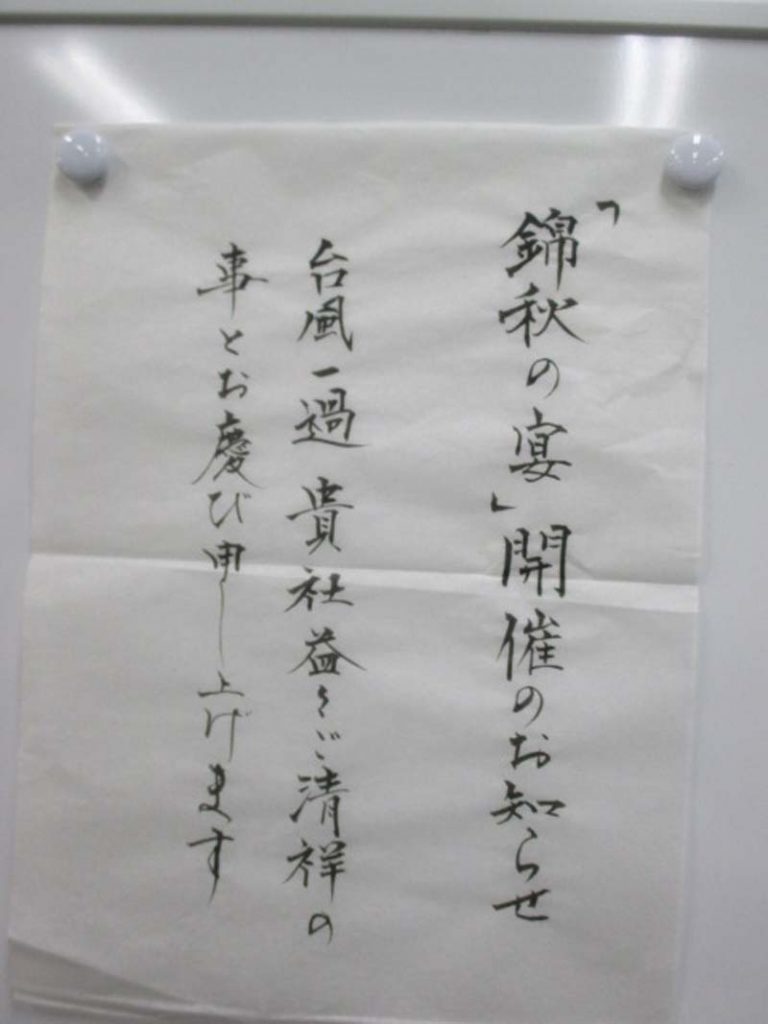 「錦秋の宴」開催のお知らせ
台風一過 貴社益々ご清祥の
事とお慶び申し上げます